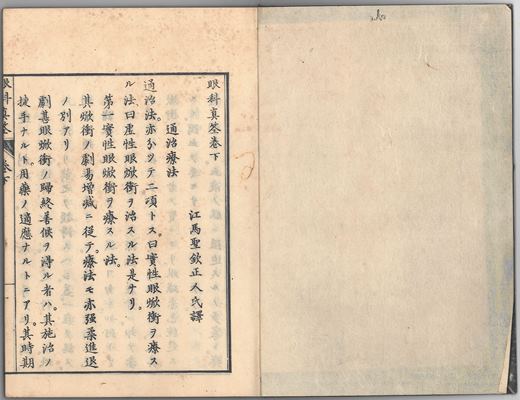 眼科真筌巻下
江馬聖欽正人氏譯
通治療法
通治法。亦分ツテ二項トス。曰實性眼焮衝ヲ療ス
ル法。曰虚性眼焮衝ヲ治スル法是ナリ。
第一實性眼焮衝ヲ療スル法。
其焮衝ノ劇易増減ニ従テ。療法モ亦强柔進退
ノ別アリ
劇甚眼焮衝ノ歸終善候ヲ得ル者ハ。其施治ノ
捷手ナルト。用藥ノ適應ナルトニアリ。其時期
眼科真筌
巻下